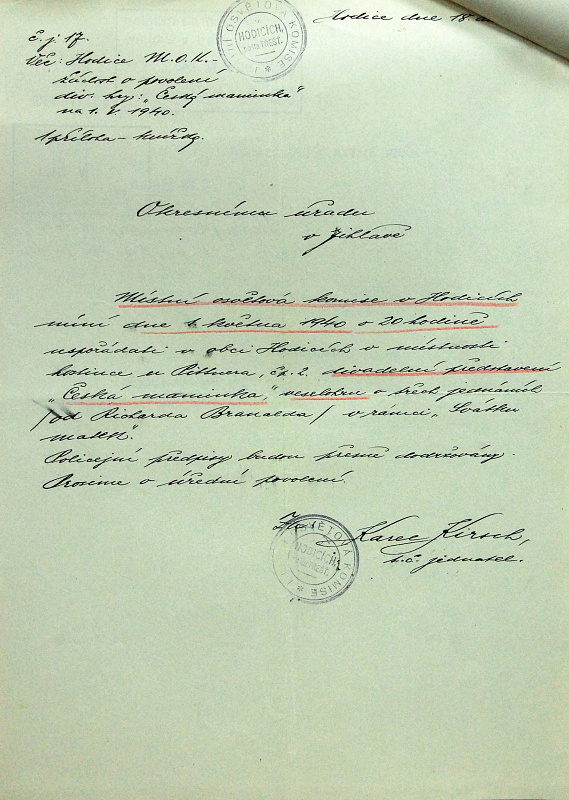 Hodice dne 18
Č. j. 17.
Věc: Hodice M.O.K.-
žádost o povolení
div. hry: „Česká maminka"
na 1. V. 1940.
1 příloha -
NÍ OSVĚTOVÁ KOMISE
HODICÍCH,
Okresnímu úřadu
v Jihlavě
Místní osvětová komise v Hodicích
míní dne 1. května 1940 o 20 hodině
uspořádati v obci Hodicích v místnosti
hostince u Pittnera, čp. 2. divadelní představení
„Česká maminka" veselohru o třech jednáních
/od Richarda Branalda/ v rámci „Svátku
matek".
Policejní předpisy budou přesně dodržovány.
Prosíme o úřední povolení.
Karel Kirsch,
t.č. jednatel.
OSVĚTOVÁ KOMISE
HODICÍCH,